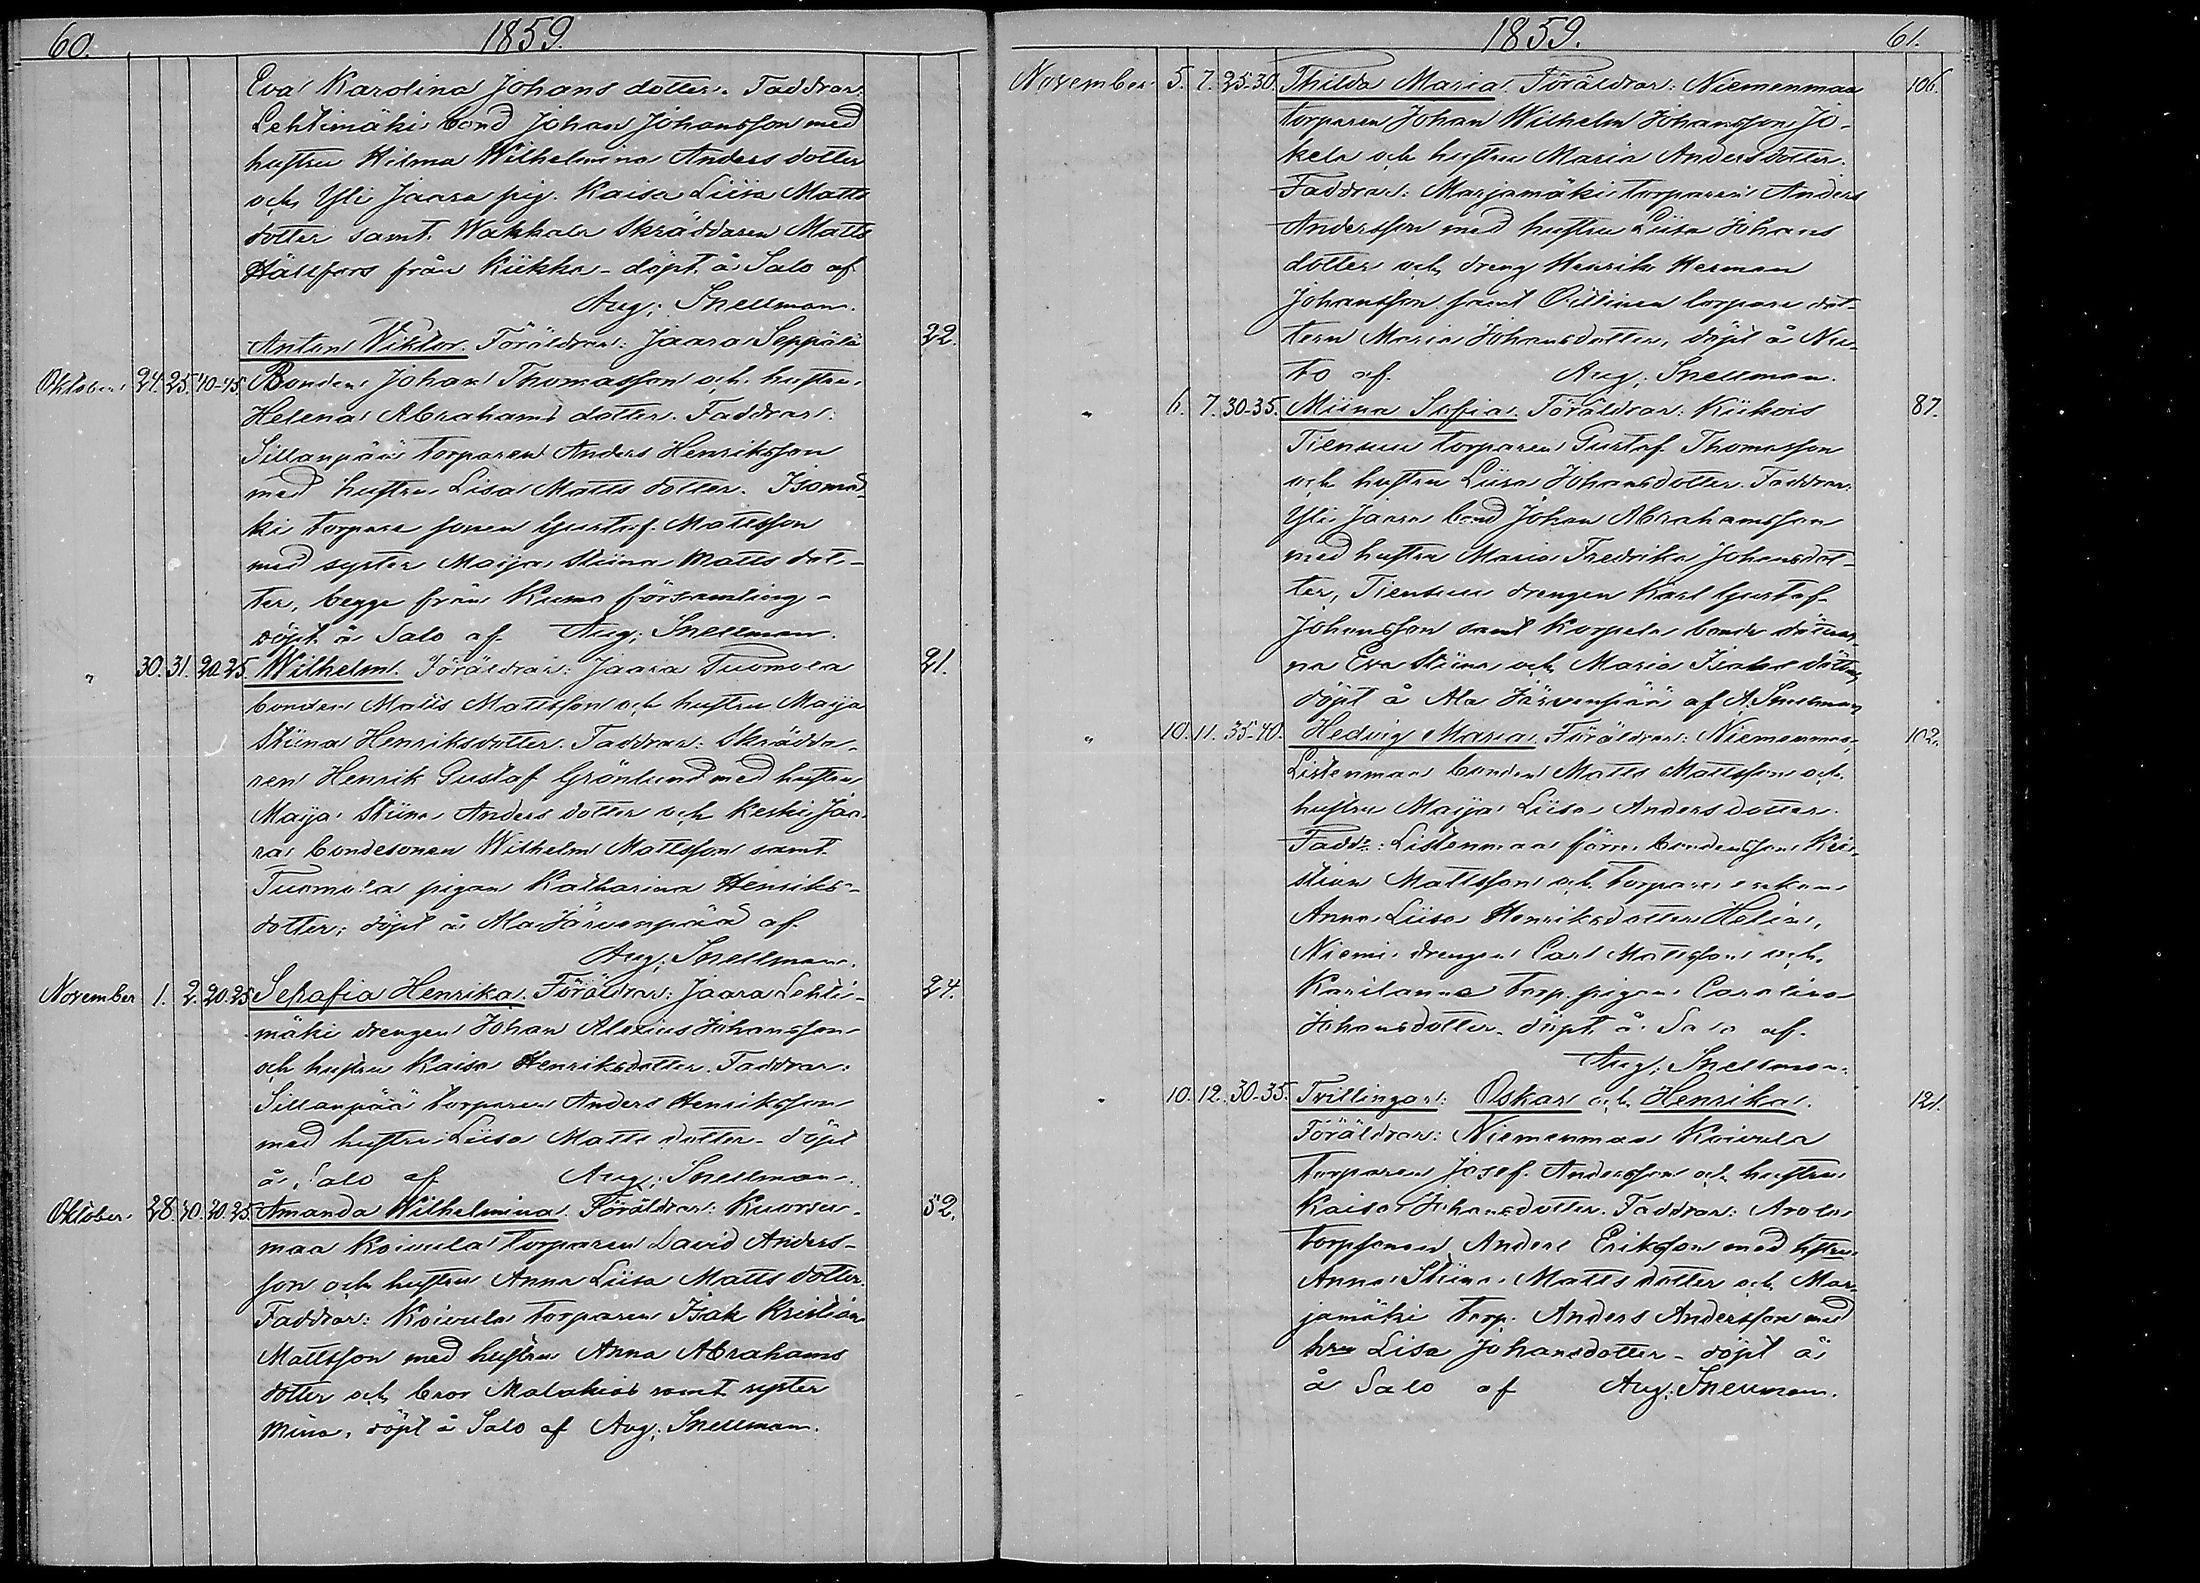 60.
1859.
Eva Karolina Johans dotter. Faddrar:
Lehtimäki bond Johan Johansson med
hustru Hilma Wilhelmina Anders dotter
och Yli Jaara pig. Kaisa Liisa Matts
dotter samt Wakkala Skräddaren Matts
Hällfors från Kiikka - döpt å Salo af
Aug: Snellman.
Anton Viktor. Föräldrar: Jaara Seppälä 22.
Oktober 24. 25. 40-45. Bonden Johan Thomasson och hustru
Helena Abrahams dotter. Faddrar:
Sillanpää torparen Anders Henriksson
med hustru Lisa Matts dotter. Isomä-
ki torpare sonen Gustaf Mattsson
med syster Maija Stiina Matts dot-
ter, begge från Kumo församling -
döpt å Salo af Aug: Snellman.
" 30. 31. 20-25. Wilhelm. Föräldrar: Jaara Tuomola 21.
bonden Matts Mattsson och hustru Maija
Stiina Henriksdotter. Faddrar: Skrädda-
ren Henrik Gustaf Grönlund med hustru
Maija Stiina Anders dotter och Keski Jaa-
ra bondesonen Wilhelm Mattsson samt
Tuomola pigan Katharina Henriks-
dotter; döpt å Ala Järvenpää af
Aug: Snellman.
November 1. 2. 20-25 Serafia Henrika. Föräldrar: Jaara Lehti- 24.
mäki drengen Johan Alexius Johansson
och hustru Kaisa Henriksdotter. Faddrar:
Sillanpää torparen Anders Henriksson
med hustru Liisa Matts dotter - döpt
å Salo af Aug: Snellman.
Oktober 28. 30. 20-25. Amanda Wilhelmina. Föräldrar: Kuorsu- 52.
maa Koivula torparen David Anders-
son och hustru Anna Liisa Matts dotter.
Faddrar: Koivula torparen Isak Kristian
Mattsson med hustru Anna Abrahams
dotter och bror Malakias samt syster
Miina, döpt å Salo af Aug: Snellman.
1859.
61.
November 5. 7. 25-30. Thilda Maria. Föräldrar: Niemenmaa 106.
torparen Johan Wilhelm Johansson Jo-
kela och hustru Maria Andersdotter.
Faddrar: Marjamäki torparen Anders
Andersson med hustru Liisa Johans
dotter och dreng Henrik Herman
Johansson samt torpare dot-
tern Maria Johansdotter, döpt å Nu-
to af Aug: Snellman.
" 6. 7. 30-35. Miina Sofia. Föräldrar: Kiikois 87.
Tiensuu torparen Gustaf Thomasson
och hustru Liisa Johansdotter. Faddrar:
Yli Jaara bond Johan Abrahamsson
med hustru Maria Fredrika Johansdot-
ter, Tiensuu drengen Karl Gustaf
Johansson samt Korpela bonde döttrar-
na Eva Stiina och Maria Isaks döttrar
döpt å Ala Järvenpää af A. Snellman
" 10. 11. 35-40. Hedvig Maria. Föräldrar: Niemenmaa 102.
Listenmaa bonden Matts Mattsson och
hustru Maija Liisa Anders dotter.
Faddr: Listenmaa förra bondenson Kri-
stian Mattsson och torpare enkan
Anna Liisa Henriksdotter Helin,
Niemi drengen Carl Mattsson och
Karilanma torp. pigan Carolina
Johansdotter - döpt å Salo af
Aug: Snellman.
" 10. 12. 30-35. Tvillingar: Oskar och Henrika. 121.
Föräldrar: Niemenmaa Koivula
torparen Josef Andersson och hustru
Kaisa Johansdotter. Faddrar: Arola
torpsonen Anders Eriksson med hstru
Anna Stiina Matts dotter och Mar-
jamäki torp. Anders Andersson med
hru Lisa Johansdotter - döpt å
å Salo af Aug: Snellman.